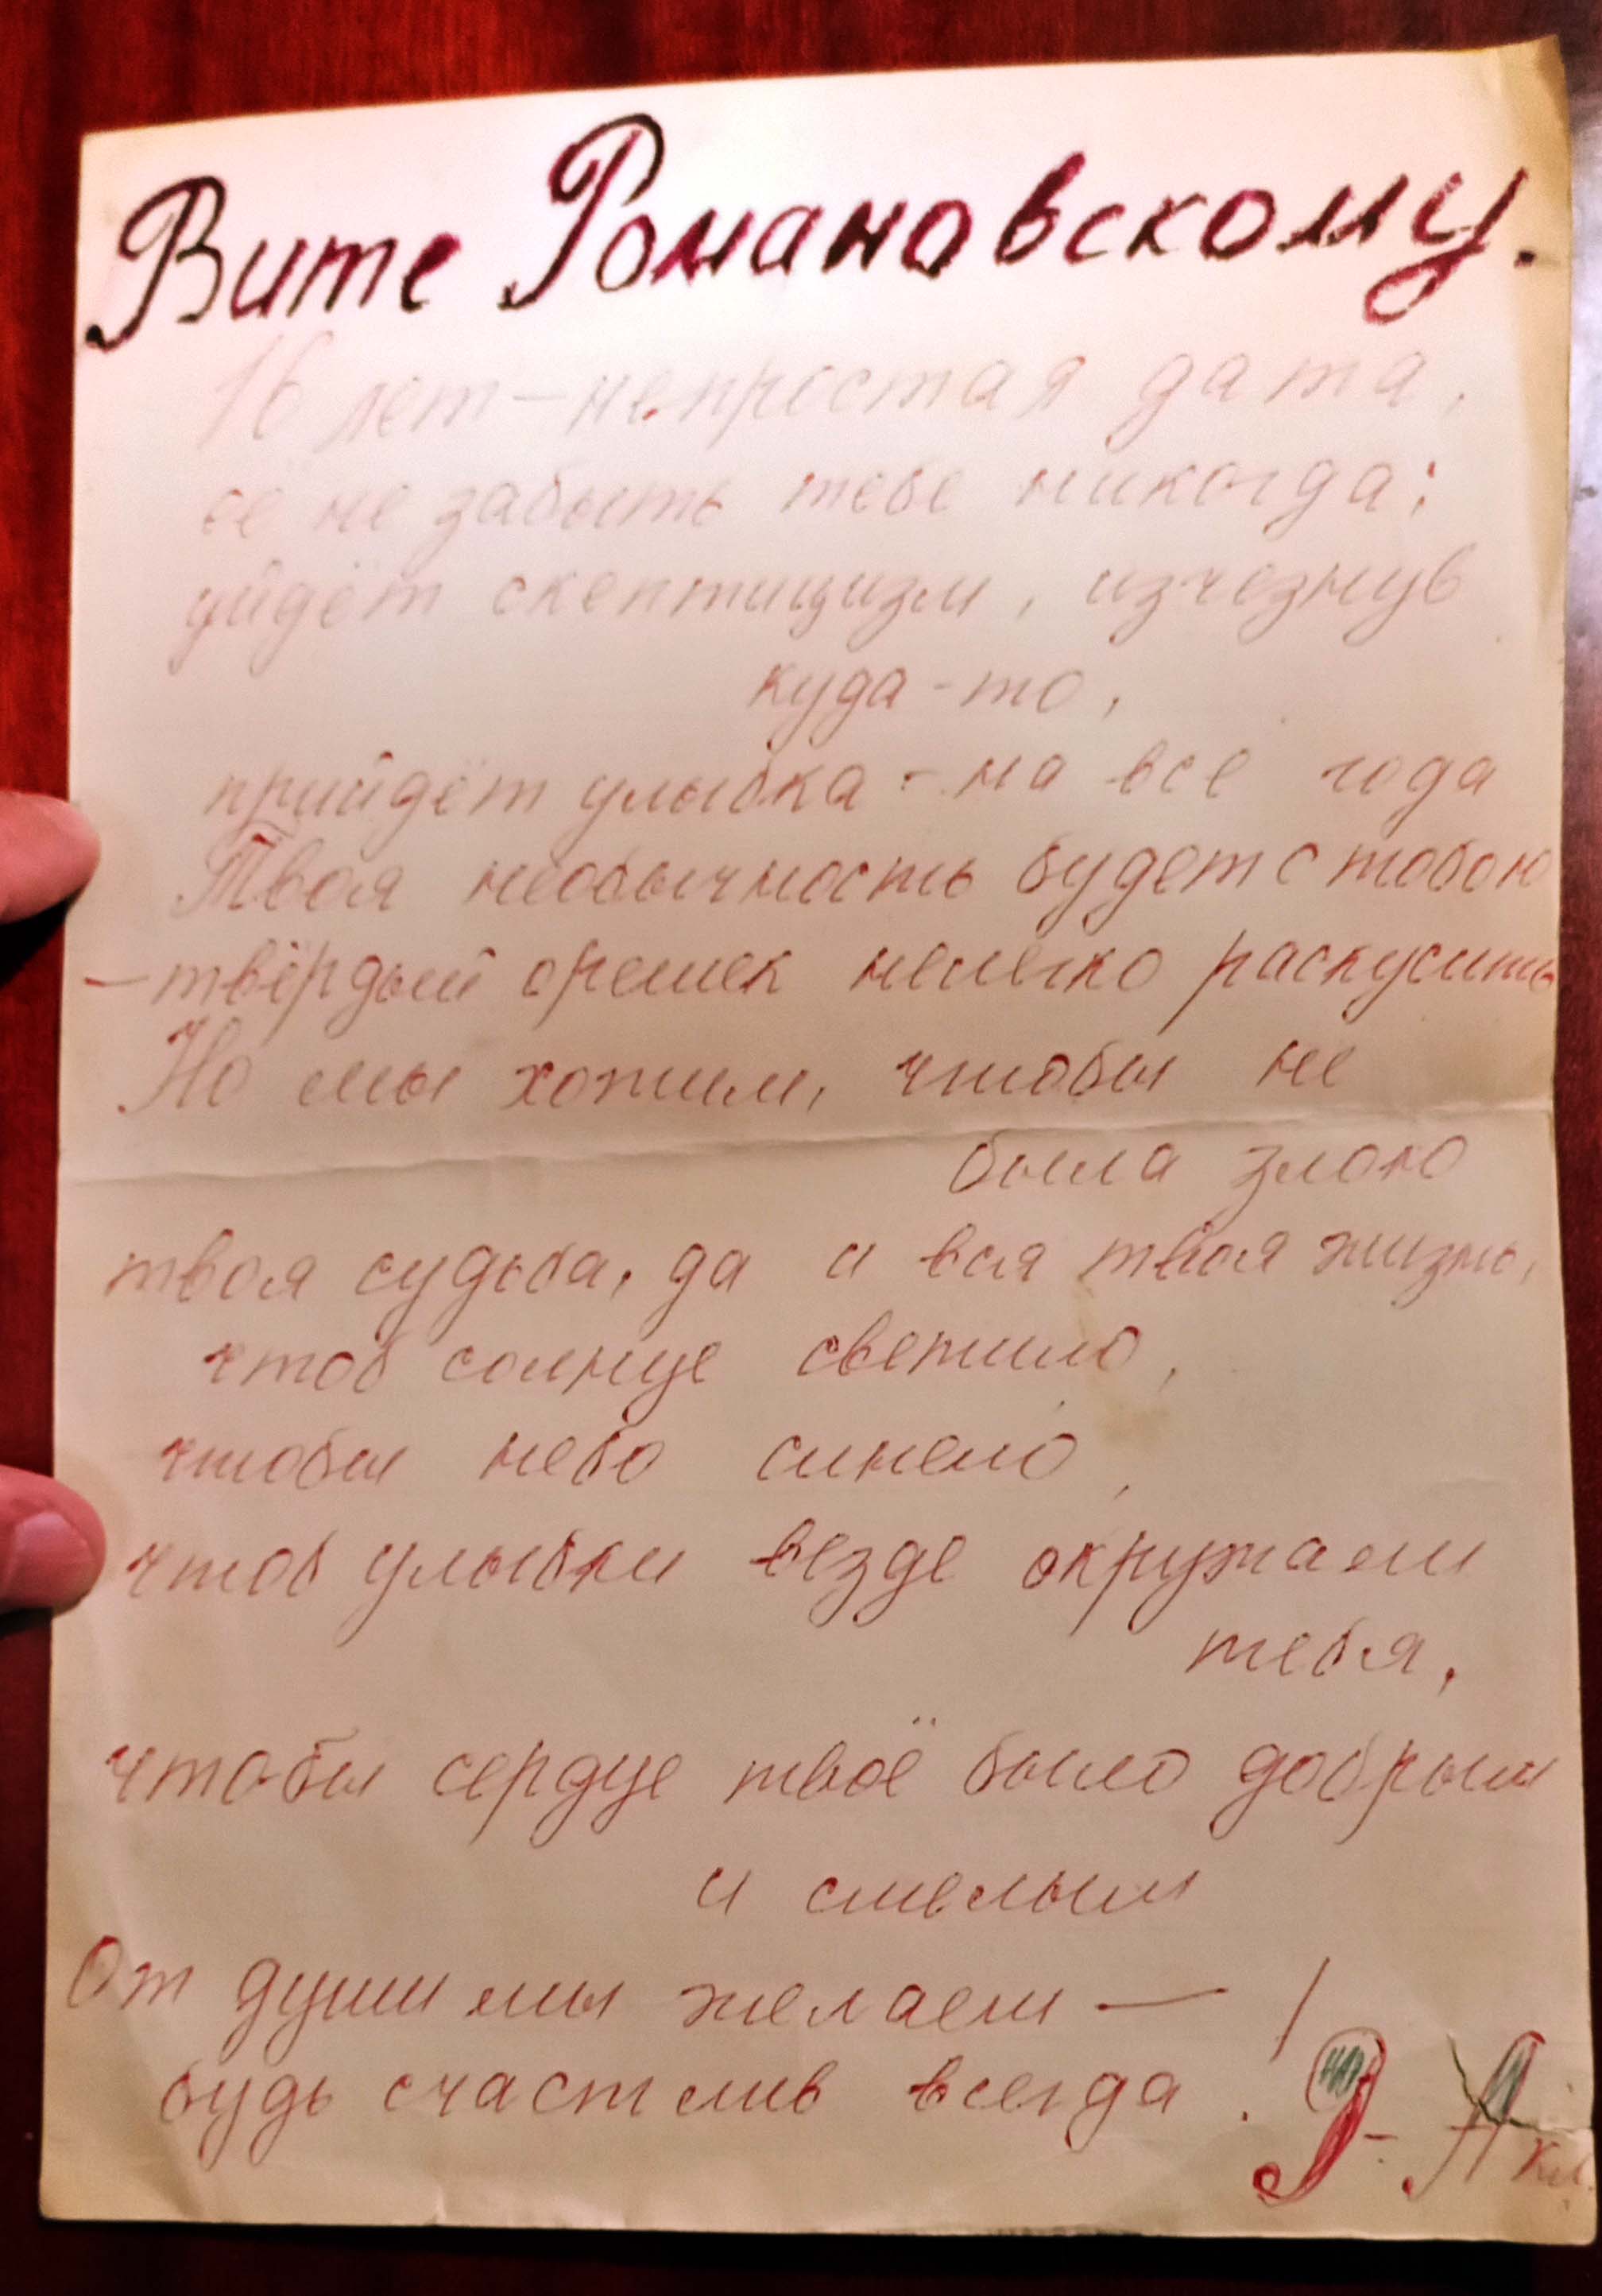 Вите Романовскому.
16 лет – непростая дата,
её не забыть тебе никогда;
уйдёт скептицизм, изчезнув
куда-то,
прийдёт улыбка – на все года
Твоя необычность будет с тобою
– твёрдый орешек нелегко раскусить
Но мы хотим, чтобы не
была злою
твоя судьба, да и вся твоя жизнь,
чтоб солнце светило,
чтобы небо синело,
чтоб улыбки везде окружали
тебя,
чтобы сердце твоё было добрым
и смелым
От души мы желаем — !
будь счастлив всегда.
9-А кл.